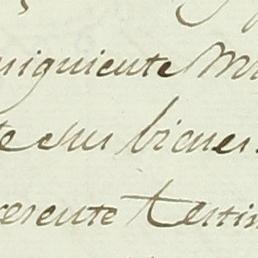 niguiente M
te sus bienes.
resente testim